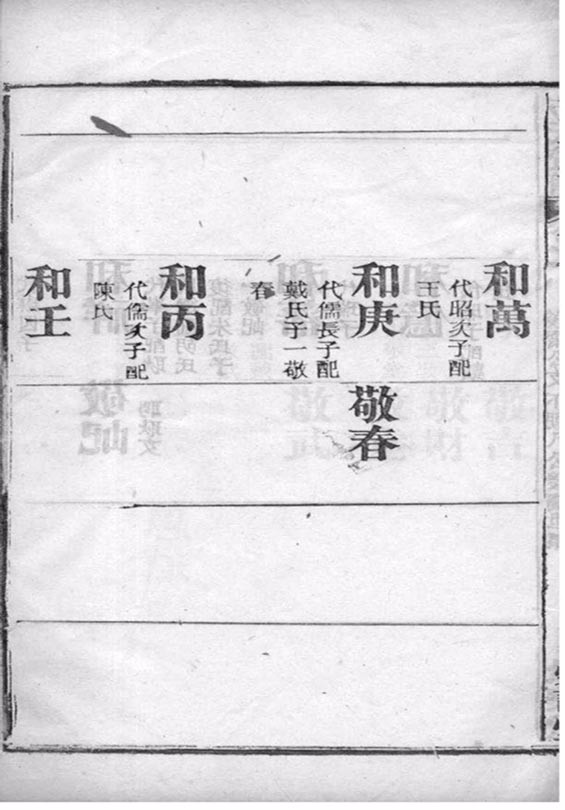 和萬
代昭次子配
王氏
和庚
代儒長子配
戴氏子 敬
春
敬春
和丙
代儒次子配
陳氏
和壬